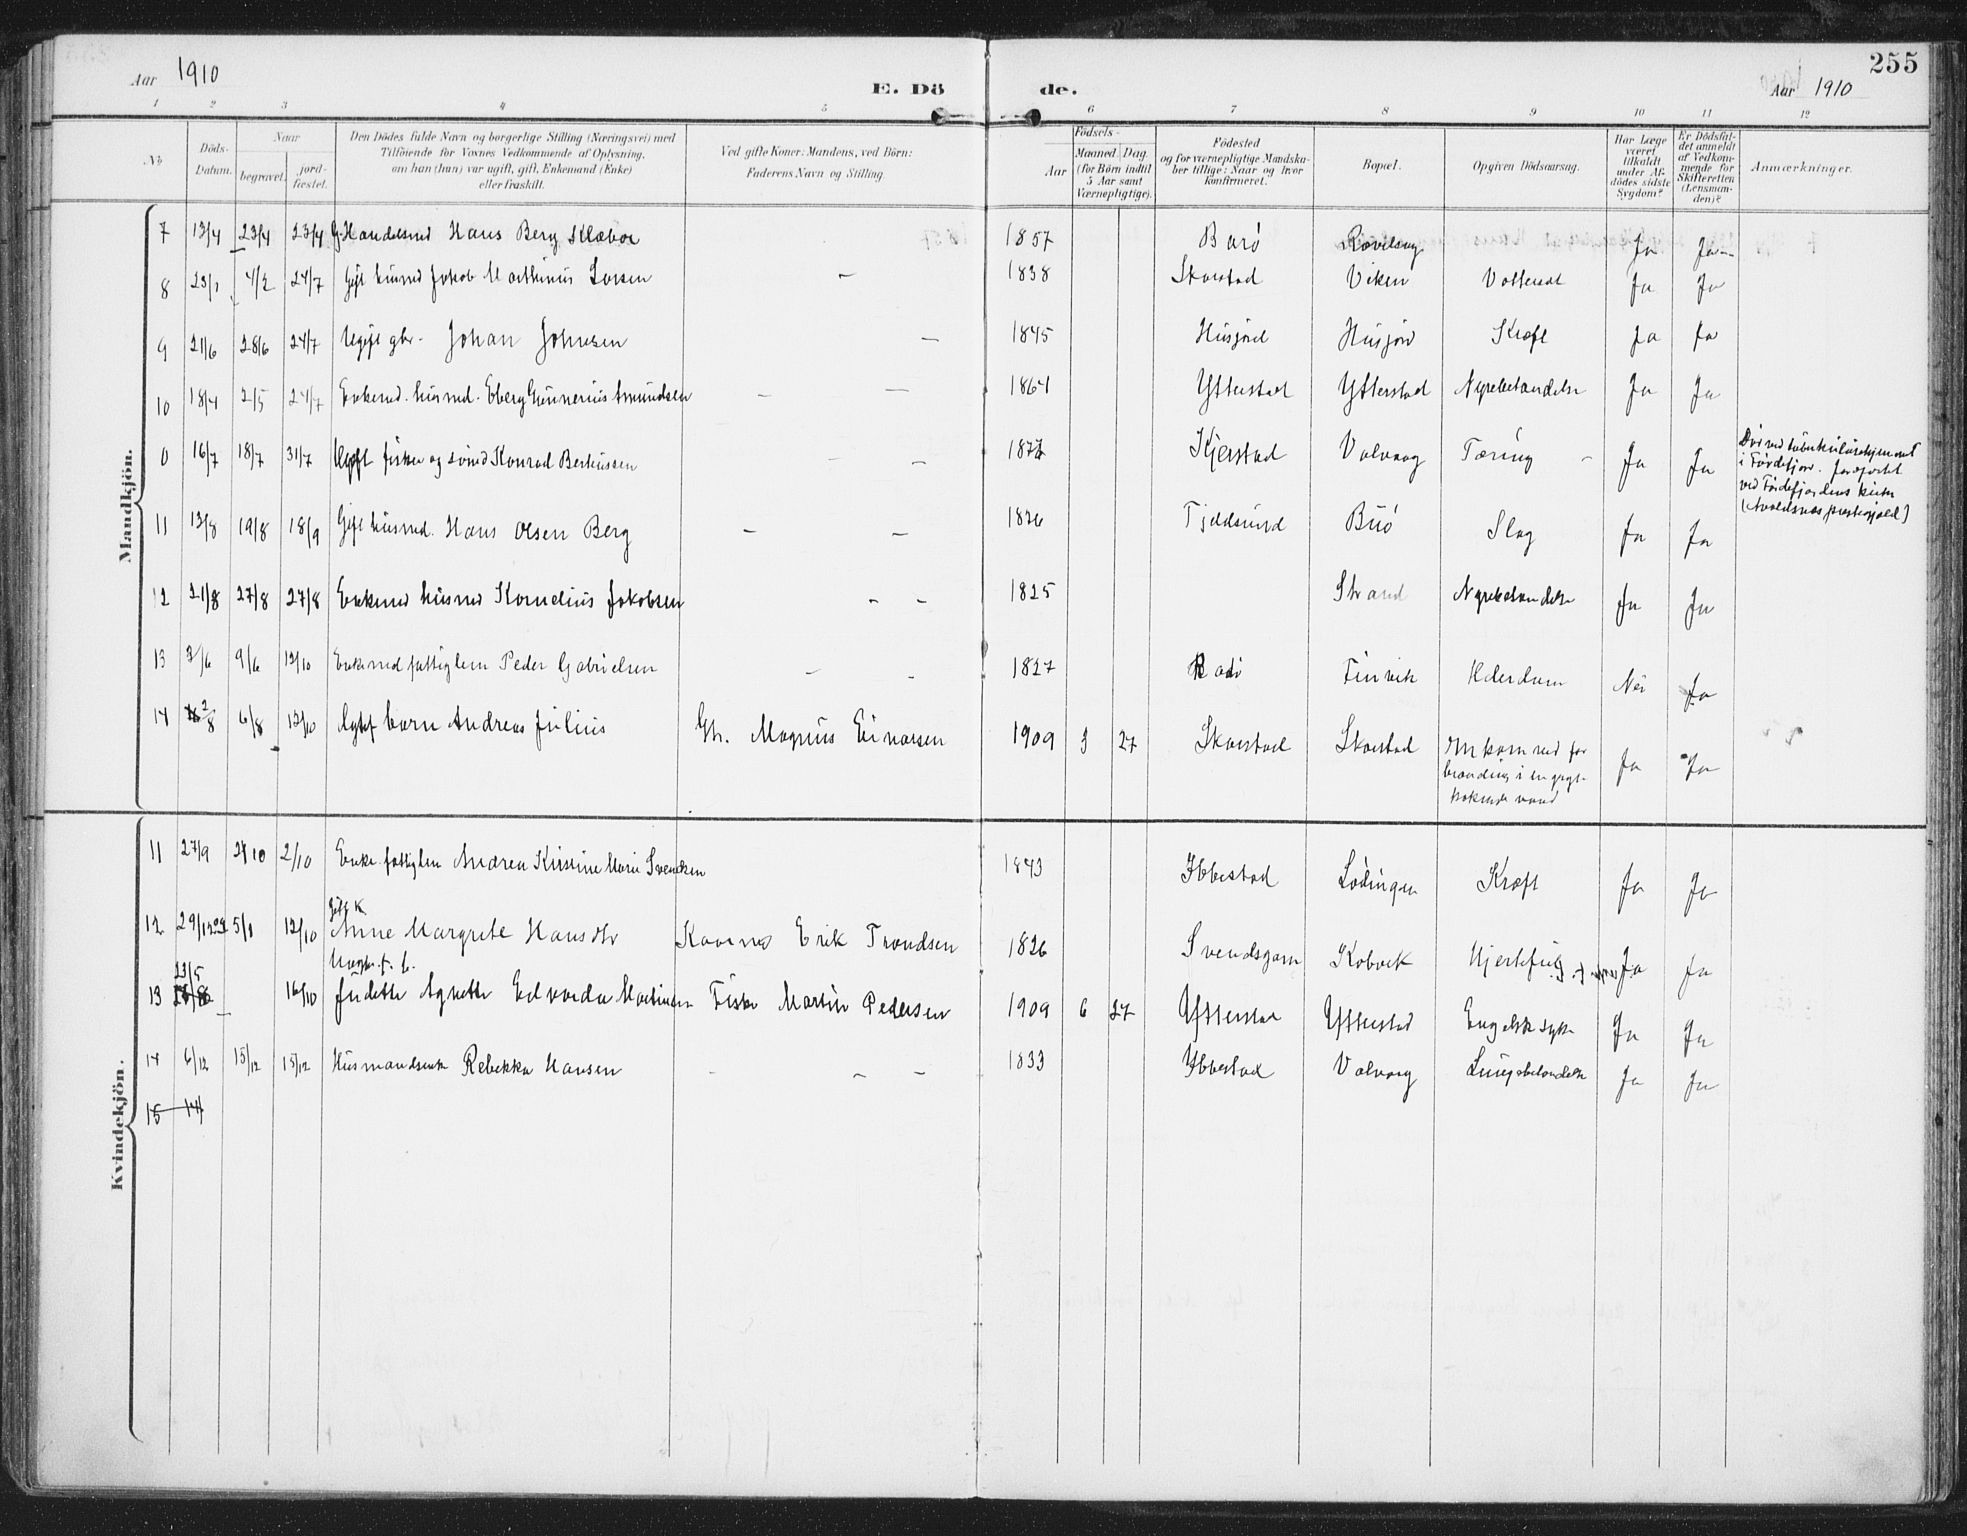 Aar 1910
E. Dö
de.
Aar 1910
255
1 2 3 4 5 6 7 8 9 10 11 12
No
Döds-Datum.
Naar
begravet.
jord-fæstet.
Den Dödes fulde Navn og borgerlige Stilling (Næringsvei) med
Tilföiende for Voxnes Vedkommende af Oplysning,
om han (hun) var ugift, gift, Enkemand (Enke)
eller fraskilt.
Ved gifte Koner: Mandens, ved Börn:
Faderens Navn og Stilling.
Födsels-
Aar
Maaned. Dag.
(for Börn indtil
5 Aar samt
Værnepligtige).
Födested
og for værnepligtige Mandska-
ber tillige: Naar og hvor
konfirmeret.
Bopæl.
Opgiven Dödsaarsag.
Har Læge
været
tilkaldt
under Af-
dödes sidste
Sygdom?
Er Dödsfal-
det anmeldt
af Vedkom-
mende for
Skifteretten
(Lensman-
den)?
Anmærkninger.
Mandkjön.
7 13/4 23/4 23/4 G. Handelsmd Hans Berg Klæboe 1857 Barö Ja Ja
8 23/1 4/2 24/7 Gift husmd Jakob Marthinus Larsen — 1838 Skarstad Viken Vattersot Ja Ja
9 21/6 28/6 24/7 Ugift gbr. Johan Johnsen — 1845 Husjord Husjord Kræft Ja Ja
10 18/4 2/5 24/7 Enkemd. husmd. Eberg Gunnerius Amundsen — — 1864 Ytterstad Ytterstad Nyrebetændelse Ja Ja
0 16/7 18/7 31/7 Ugift fisker og Konrad Berthussen — — 1877 Kjerstad Valvaag Tæring — Ja Ja
Död ved tuberkulosehjemmet
i Fördefjor. Jordfæstet
ved Fördefjordens kirke
(Avaldsnes prestegjæld)
11 13/8 19/8 18/9 Gift husmd. Hans Olsen Berg — — 1826 Tjeldsund Buö Slag Ja Ja
12 21/8 27/8 27/8 Enkemd husmd Kornelius Jakobsen — — 1825 Strand Nyrebetændelse Ja Ja
13 3/6 9/6 12/10 Enkemd fattiglem Peder Gabrielsen — — 1827 Finvik Alderdom Nei Ja
14 2/8 6/8 12/10 barn Andreas Julius Gbr. Magnus Einarsen 1909 3 27 Skarstad Skarstad Omkom ved for
brænding i en gryte
kokende vand Ja Ja
Kvindekjön.
11 27/9 2/10 2/10 Enke fattiglem Andrea Kirstine Marie Svendsen 1843 Ibbestad Lödingen Kræft Ja Ja
Gift K.
12 29/12 09 5/1 12/10 Anne Margrete Hansdtr Kaarmd Erik Trondsen 1826 Svendsgam Kobvik Hjertefeil Ja Ja
13 23/5 16/10 Judette Agnette Edvarda Martinsen Fisker Martin Pedersen 1909 6 27 Ytterstad Ytterstad Engelsk syke Ja Ja
14 6/12 15/12 15/12 Husmandsenke Rebekka Hansen — — — 1833 Ibbestad Valvaag Lungebetændelse Ja Ja
15 14